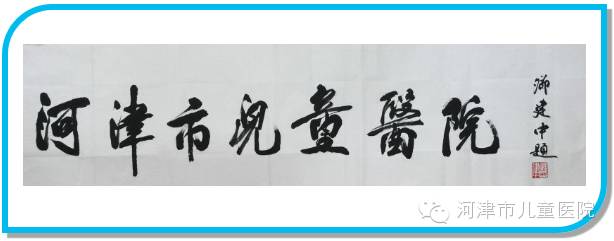 河津市兒童醫院
卿建中題
河津市儿童医院